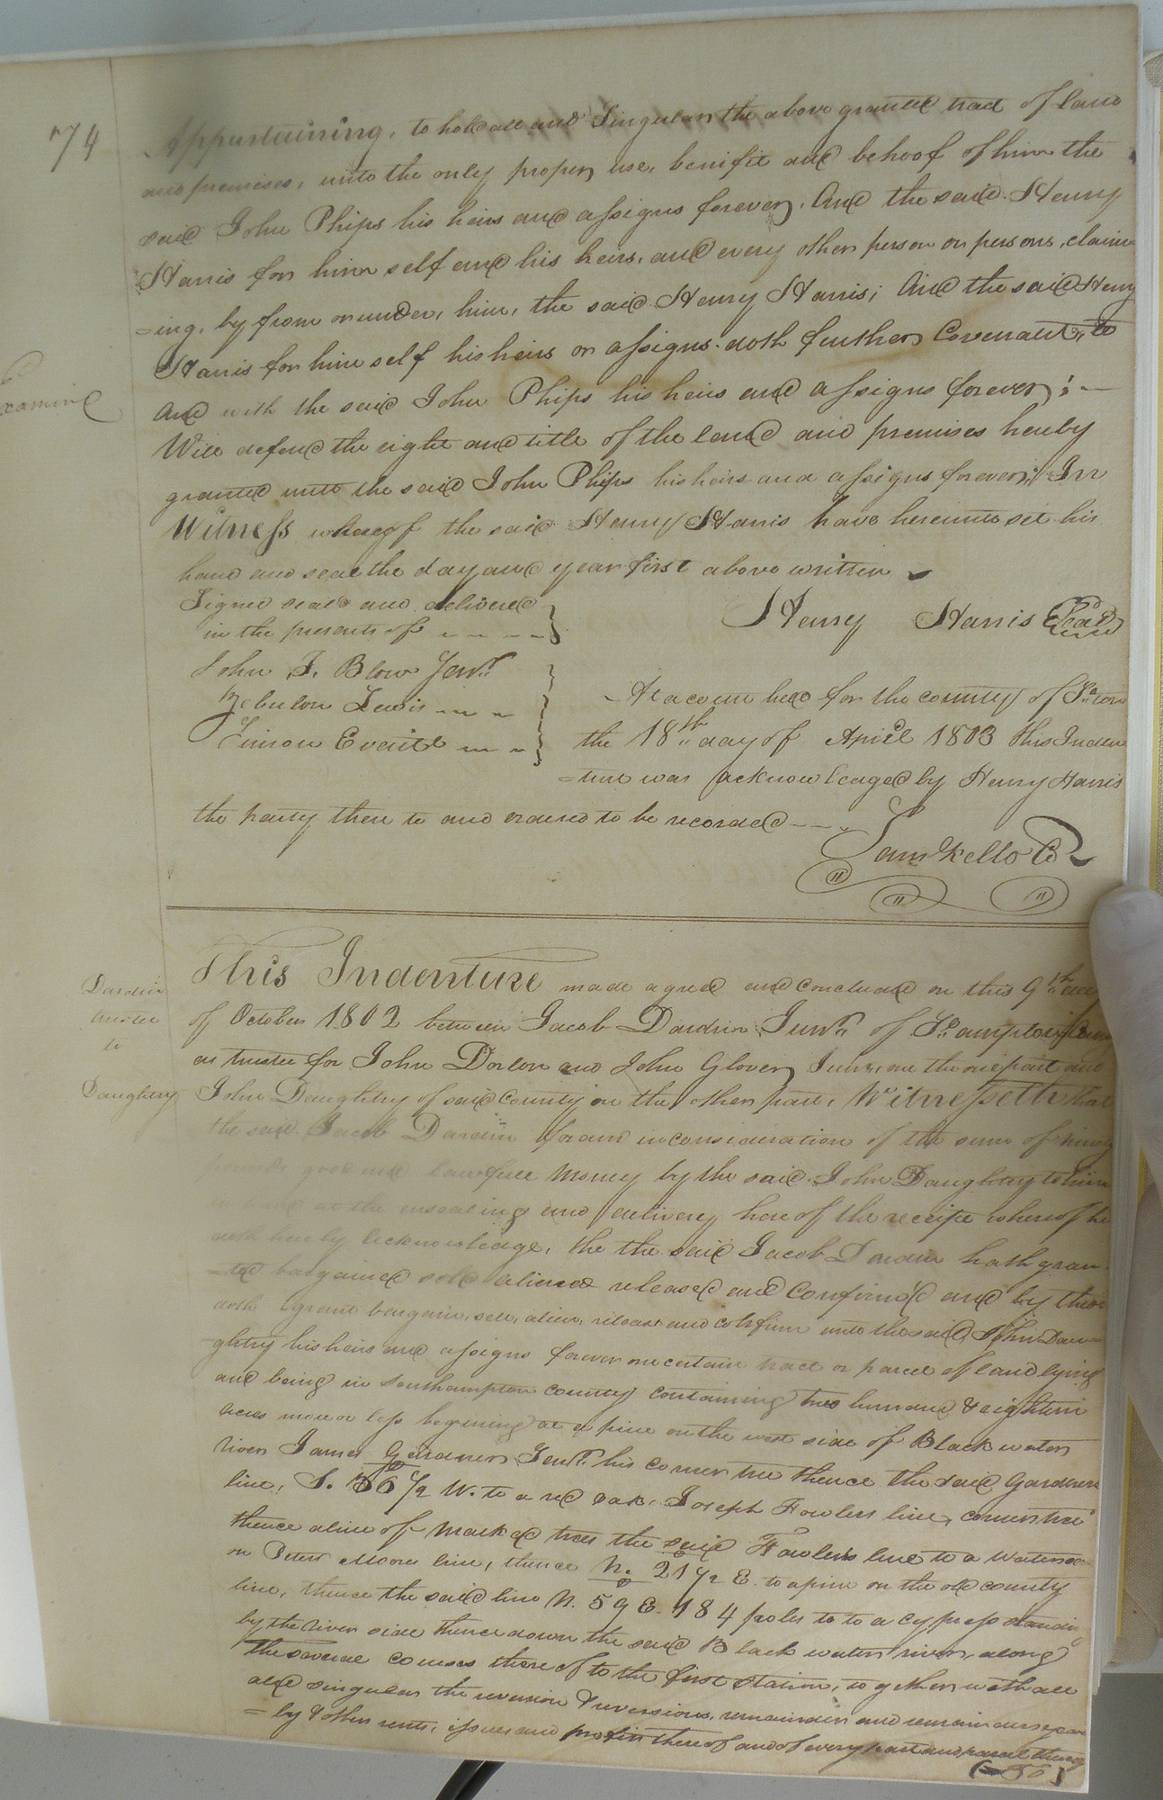 74
Appurtaining, to hold all and Singular the above granted tract of land
and premises, unto the only proper use, benifit and behoof of him the
said John Phips his heirs and assigns forever. And the said Henry
Harris for him self and his heirs, and every other person or persons, claim
=ing, by from or under, him, the said Henry Harris; And the said Henry
Harris for him self his heirs or assigns doth further Covenant, to
Examined
And with the said John Phips his heirs and assigns forever; —
Will defend the right and title of the land and premises hereby
granted unto the said John Phips his heirs and assigns forever; In
Witness whereof the said Henry Harris have hereunto set his
hand and seal the day and year first above written
Signed seald and delivered
in the presents of
Henry Harris Seal
John T. Blow Junr.
Zebulon Lewis
Simon Everitt
At a court held for the county of So.ton
the 18th day of April 1803 this Inden
=ture was acknowledged by Henry Harris
the party there to and ordered to be recorded
Sam Kello Co
Dardin
trustee
to
Daughtry
This Indenture made agreed and concluded on this 9th day
of October 1802 between Jacob Dardin Junr. of So.ampton
as trustee for John Dorlon and John Glover Junr. on the one part and
John Daughtry of said County on the other part, Witnesseth that
the said Jacob Dardin for and in consideration of the sum of
pounds good and lawfull money by the said John Daughtry to him
in hand at the ensealing and delivery here of the receipt whereof he
doth hereby acknowledge, the the said Jacob Dardin hath gran
=ted bargained sold aliened released and Confirm'd and by these
doth grant bargain, sell, alien, release and confirm unto the said John Dau=
=ghtry his heirs and assigns forever one certain tract or parcel of land lying
and being in Southampton county containing two hundred & eighteen
acres more or less begining at a pine on the west side of Black water
river James Gardner Senr. his corner tree thence the said Gardners
line, S. 56 1/2 W. to a red oak, Joseph Fowlers line, corner tree
thence a line of marked trees the said Fowler's line to a
on Peters Moore line, thence N. 21 1/2 E. to a pine on the old county
line, thence the said line N. 59 E. 184 poles to to a cypress standing
by the river side thence down the said Black water river, along
the several courses there of to the first station, to gether with all
and singular the revision & reversions, remainder and remainders
=ly & other rents, issues and profits there of and of every part and parcel thereof